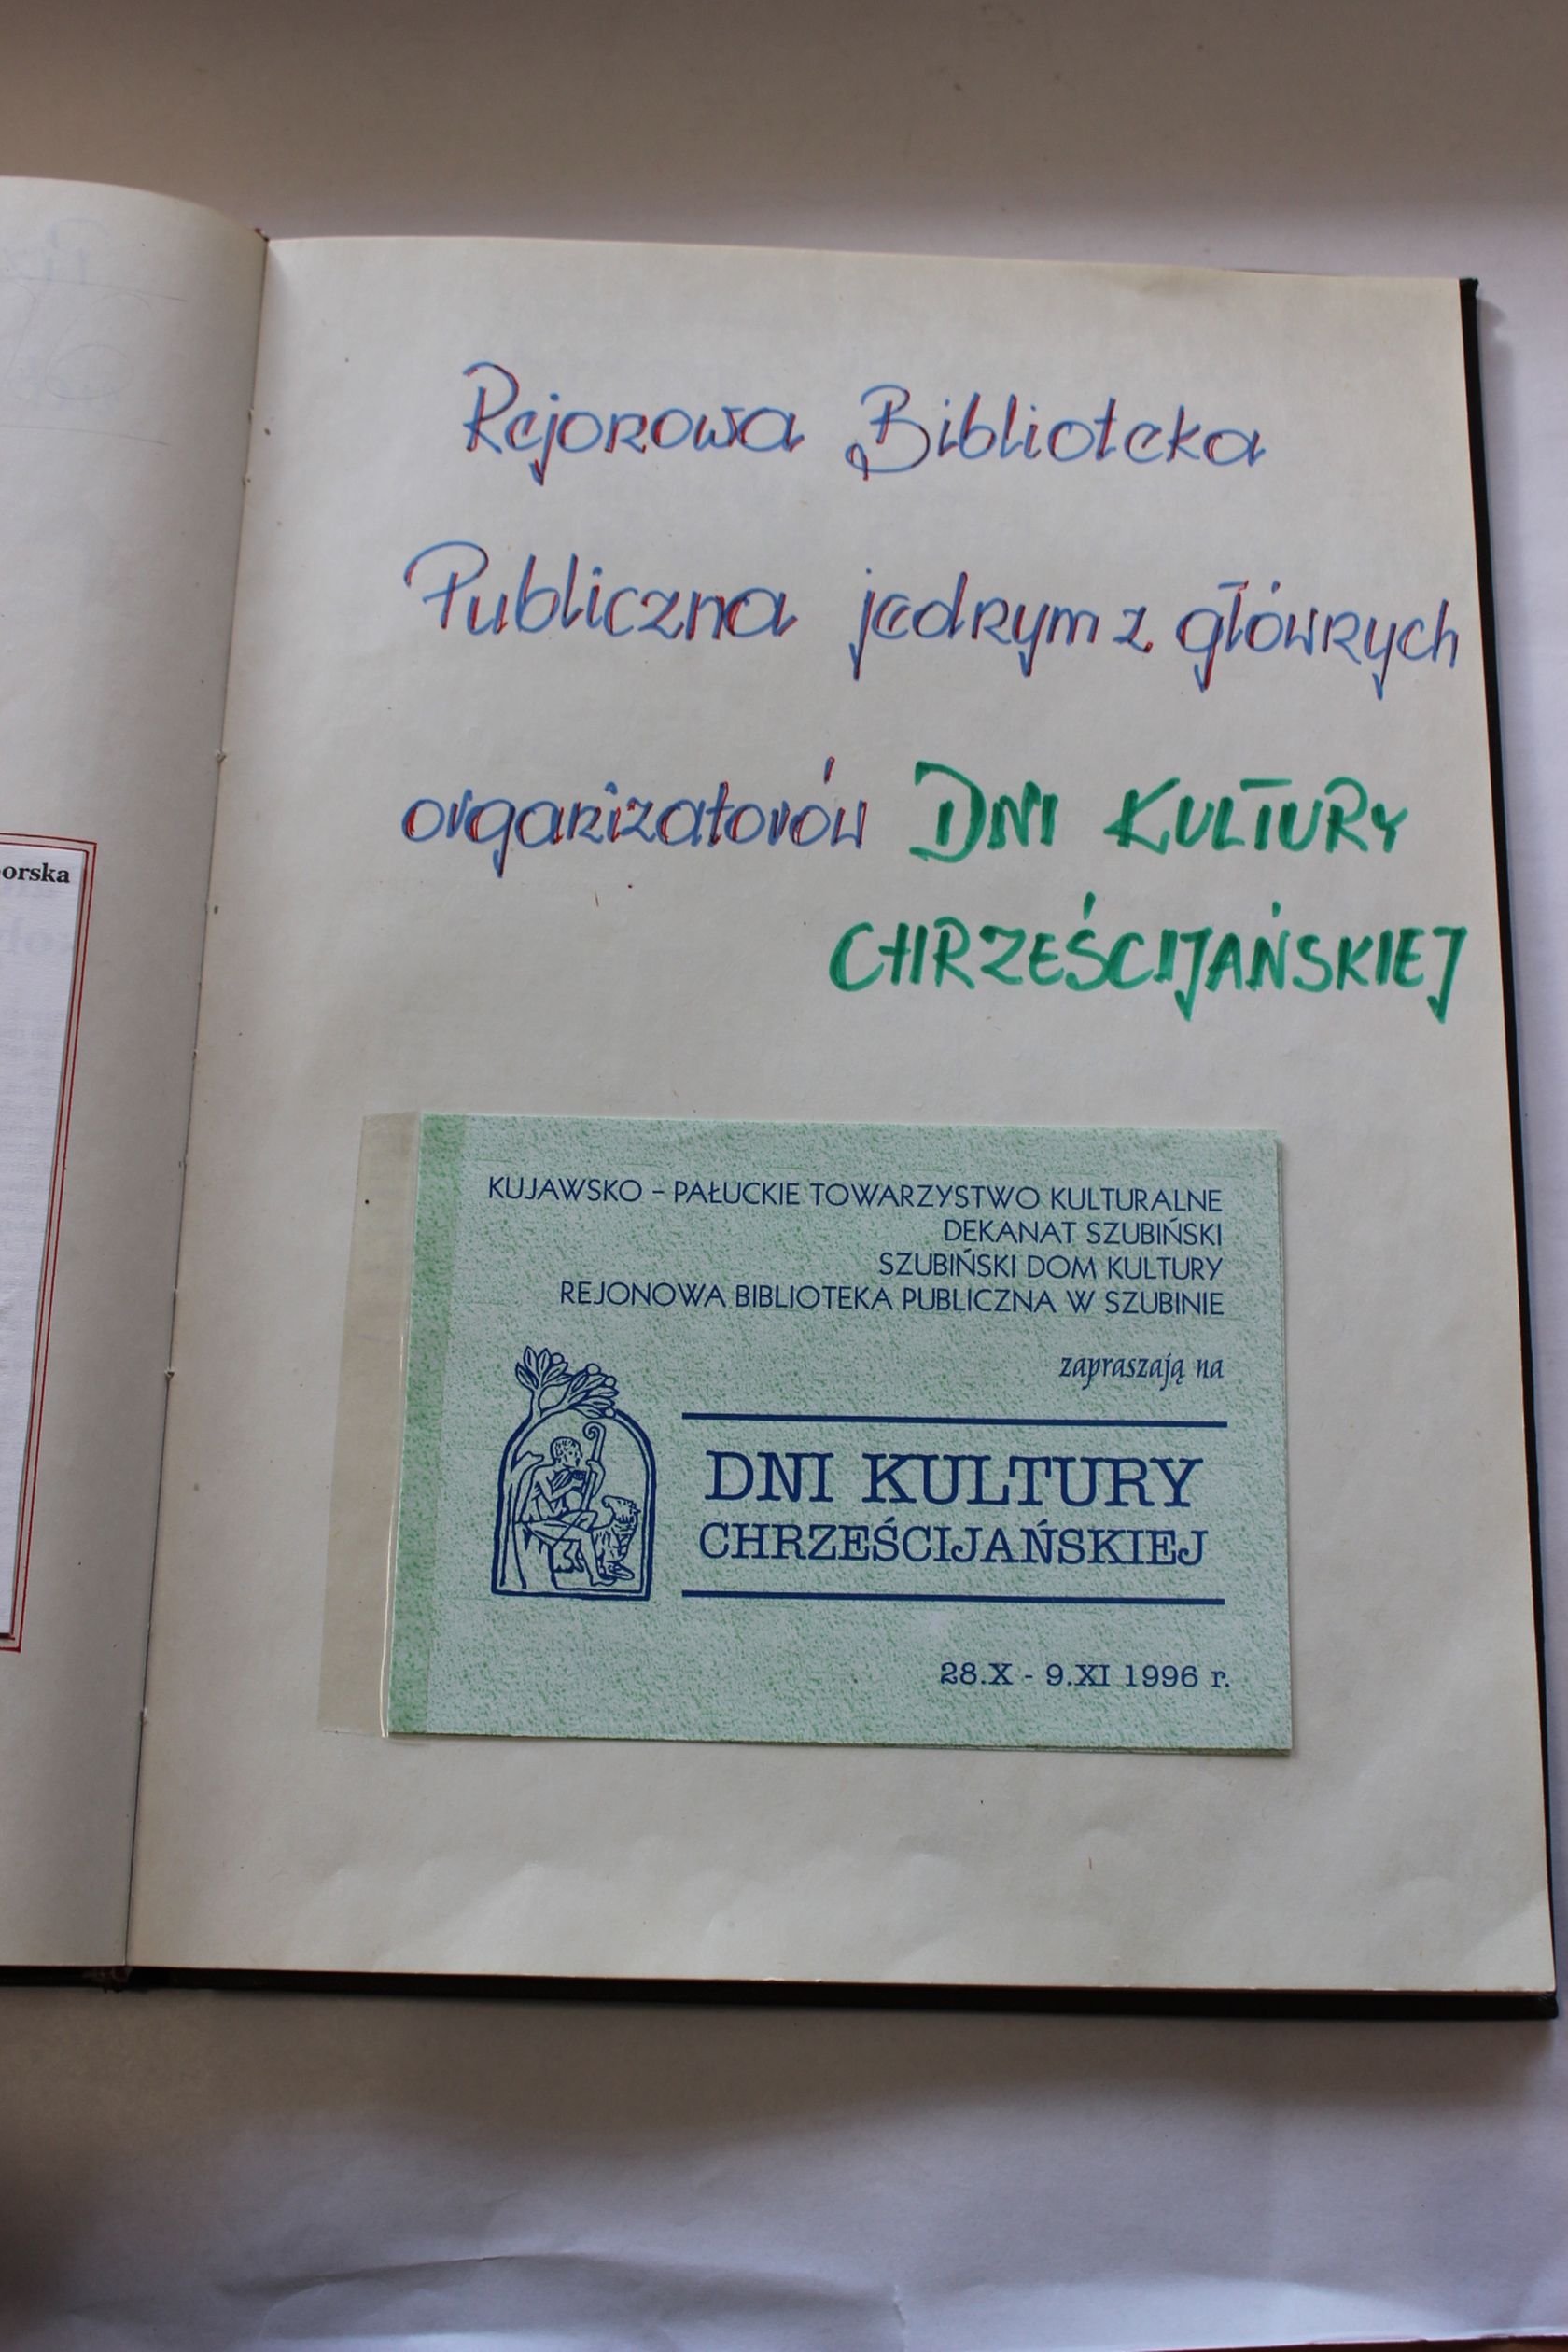 Rejonowa Biblioteka
Publiczna jednym z głównych
organizatorów DNI KULTURY
CHRZEŚCIJAŃSKIEJ
orska
KUJAWSKO - PAŁUCKIE TOWARZYSTWO KULTURALNE
DEKANAT SZUBIŃSKI
SZUBIŃSKI DOM KULTURY
REJONOWA BIBLIOTEKA PUBLICZNA W SZUBINIE
zapraszają na
DNI KULTURY
CHRZEŚCIJAŃSKIEJ
28.X - 9.XI 1996 r.